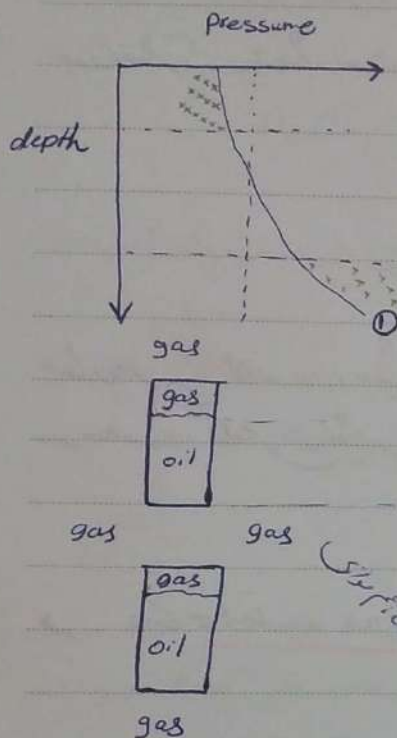 pressume
depth
①
gas
gas
oil
gas gas
gas
oil
gas